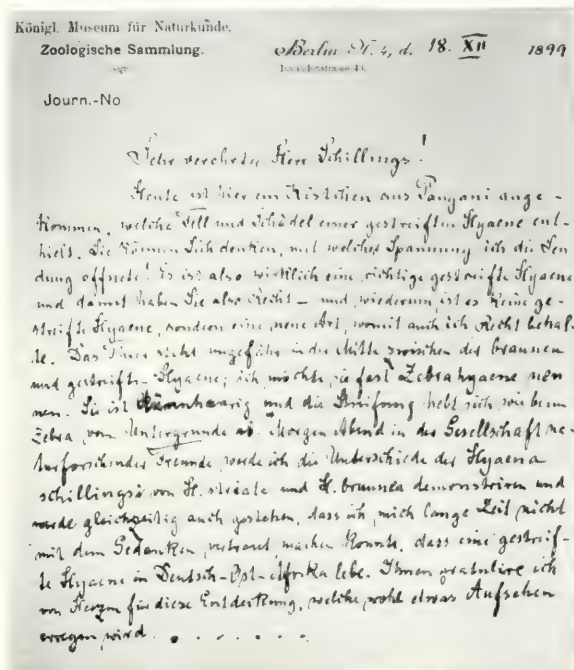 Königl. Museum für Naturkunde.
Zoologische Sammlung.
Berlin N. 4, d. 18. XII 1899
Invalidenstrasse 43.
Journ.-No
Sehr verehrter Herr Schillings!
Heute ist hier ein Kistchen aus Pangani ange-
kommen, welche Fell und Schädel einer gestreiften Hyaene ent-
hielt. Sie können Sich denken, mit welcher Spannung ich die Sen-
dung öffnete! Es ist also wirklich eine richtige gestreifte Hyaene
und damit haben Sie also Recht – und wiederum ist es keine ge-
streifte Hyaene, sondern eine neue Art, womit auch ich Recht behal-
te. Das Thier steht ungefähr in der Mitte zwischen der braunen
und gestreiften Hyaene; ich möchte sie fast Zebrahyaene nen
nen. Sie ist und die Streifung hebt sich wie beim
Zebra vom Untergrunde ab. Morgen Abend in der Gesellschaft na-
turforschender Freunde werde ich die Unterschiede der Hyaena
schillingsi von H. striata und H. brunnea demonstriren und
werde gleichzeitig auch gestehen, dass ich mich lange Zeit nicht
mit dem Gedanken vertraut machen konnte, dass eine gestreif-
te Hyaene in Deutsch-Ost-Afrika lebe. Ihnen gratulire ich
von Herzen für diese Entdeckung, welche wohl etwas Aufsehen
erregen wird. . . . . . .